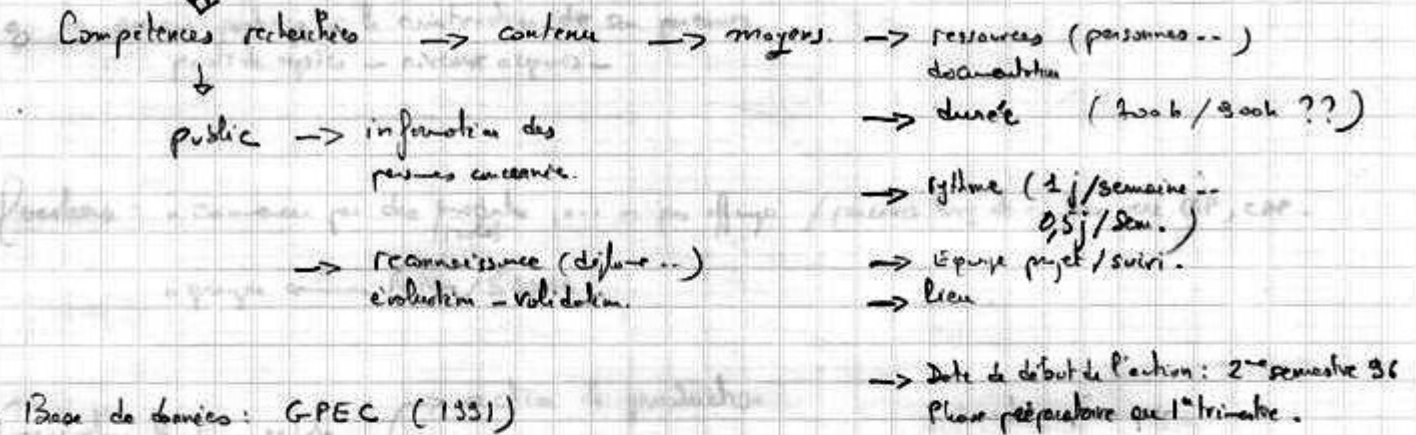 Compétences recherchées → contenu → moyens. → ressources (personnes...)
documentation
→ durée ( 200h / 900h ??)
public → information des
personnes concernées.
→ rythme ( 1 j/semaine...
0,5j/sem. )
→ reconnaissance (diplome...)
évaluation - validation.
→ Equipe projet / suivi.
→ lieu
→ Date de début de l'action : 2me semestre 96
Phase préparatoire au 1er trimestre.
Base de données : GPEC (1991)